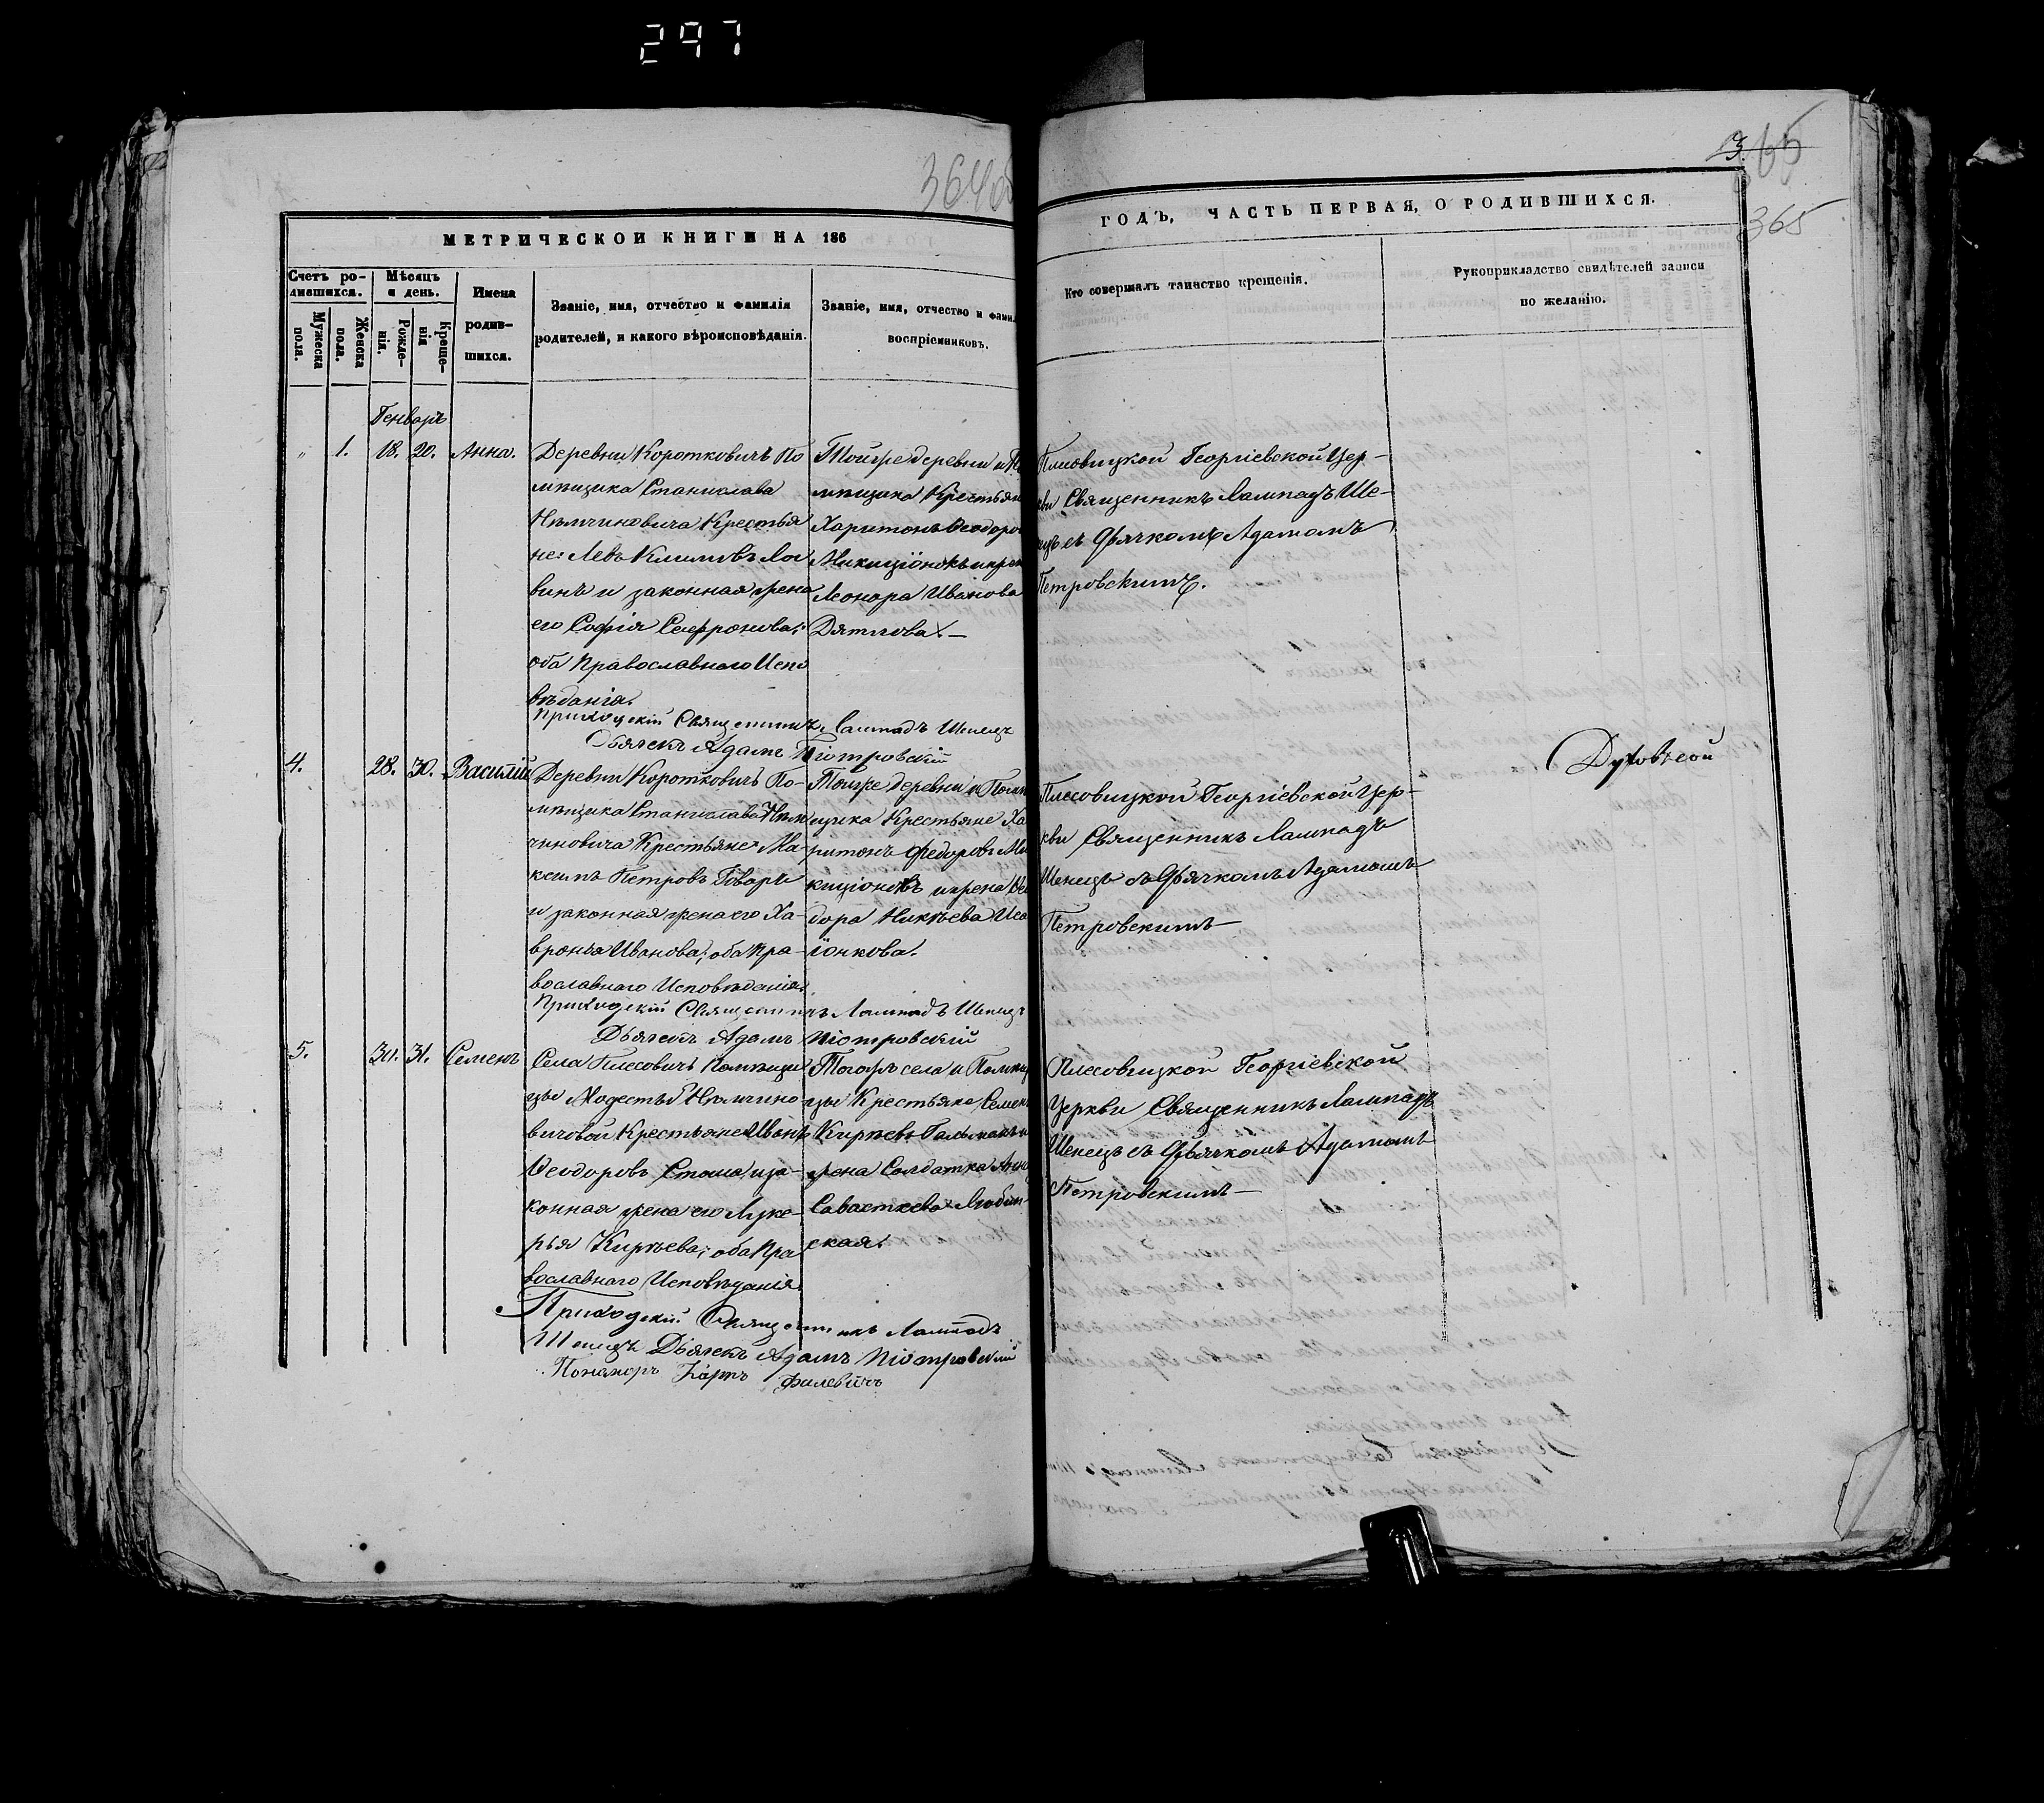 297
364об
3.
365
365
МЕТРИЧЕСКОЙ КНИГИ НА 186
ГОДЪ, ЧАСТЬ ПЕРВАЯ, О РОДИВШИХСЯ.
Счетъ ро-
дившихся.
Мужеска
пола.
Женска
пола.
Мѣсяцъ
и день.
Рожде-
нія.
Креще-
нія
Имена
родив-
шихся.
Званіе, имя, отчество и фамилія
родителей, и какого вѣроисповѣданія.
Званіе, имя, отчество и фами
воспріемниковъ.
Кто совершалъ таинство крещенія.
Рукоприкладство свидѣтелей записи
по желанію.
Генварь
" 1. 18. 20. Анна.
Деревни Коротковичъ По
мѣщика Станислава
Нѣмчиновича Крестья
не: Левъ Климовъ
винъ и законная жена
его Софія Сафронова;
оба Православнаго Испо
вѣданія.
Тойже деревни и По
мѣщика Крестьян
Харитонъ Ѳеодоро
Микиціонокъ и
Иванова
Дятлова.—
Плесовицкой Георгіевской Цер-
кви Священникъ Лампадъ Ше-
нецъ съ Дьячкомъ Адамомъ
Петровскимъ.
Приходскій Священникъ Лампадъ Шенецъ
Дьячекъ Адамъ Піотровскій
4. 28. 30. Василій
Деревни Коротковичъ По-
мѣщика Станислава Нѣм
чиновича Крестьяне: Ма-
ксимъ Петровъ Говоръ
и законная жена его Ха-
вронья Иванова; оба Пра-
вославнаго Исповѣданія.
Тойже деревни и Помѣ
щика Крестьяне Ха
ритонъ Федоровъ Ми
киціонокъ и жена Ѳео
дора
іонкова.
Плесовицкой Георгіевской Цер-
кви Священникъ Лампадъ
Шенецъ съ Дьячкомъ Адамомъ
Петровскимъ—
Духовной
Приходскій Священникъ Лампадъ Шенецъ
Дьячекъ Адамъ Піотровскій
5. 30. 31. Семенъ
Села Плесовичъ Помѣщи
цы Модесты Нѣмчино
вичовой Крестьяне Иванъ
Ѳеодоровъ Стома и за-
конная жена его Луке-
рья Кирѣева; оба Пра
вославнаго Исповѣданія
Тогожъ села и Помѣщи
цы Крестьяне Семенъ
Кирѣевъ
жена Солдатка
Савостеева Любин-
ская.
Плесовицкой Георгіевской
Церкви Священникъ Лампадъ
Шенецъ съ Дьячкомъ Адамомъ
Петровскимъ—
Приходскій Священникъ Лампадъ
Шенецъ Дьячекъ Адамъ Піотровскій
Пономарь Карпъ Филевичъ